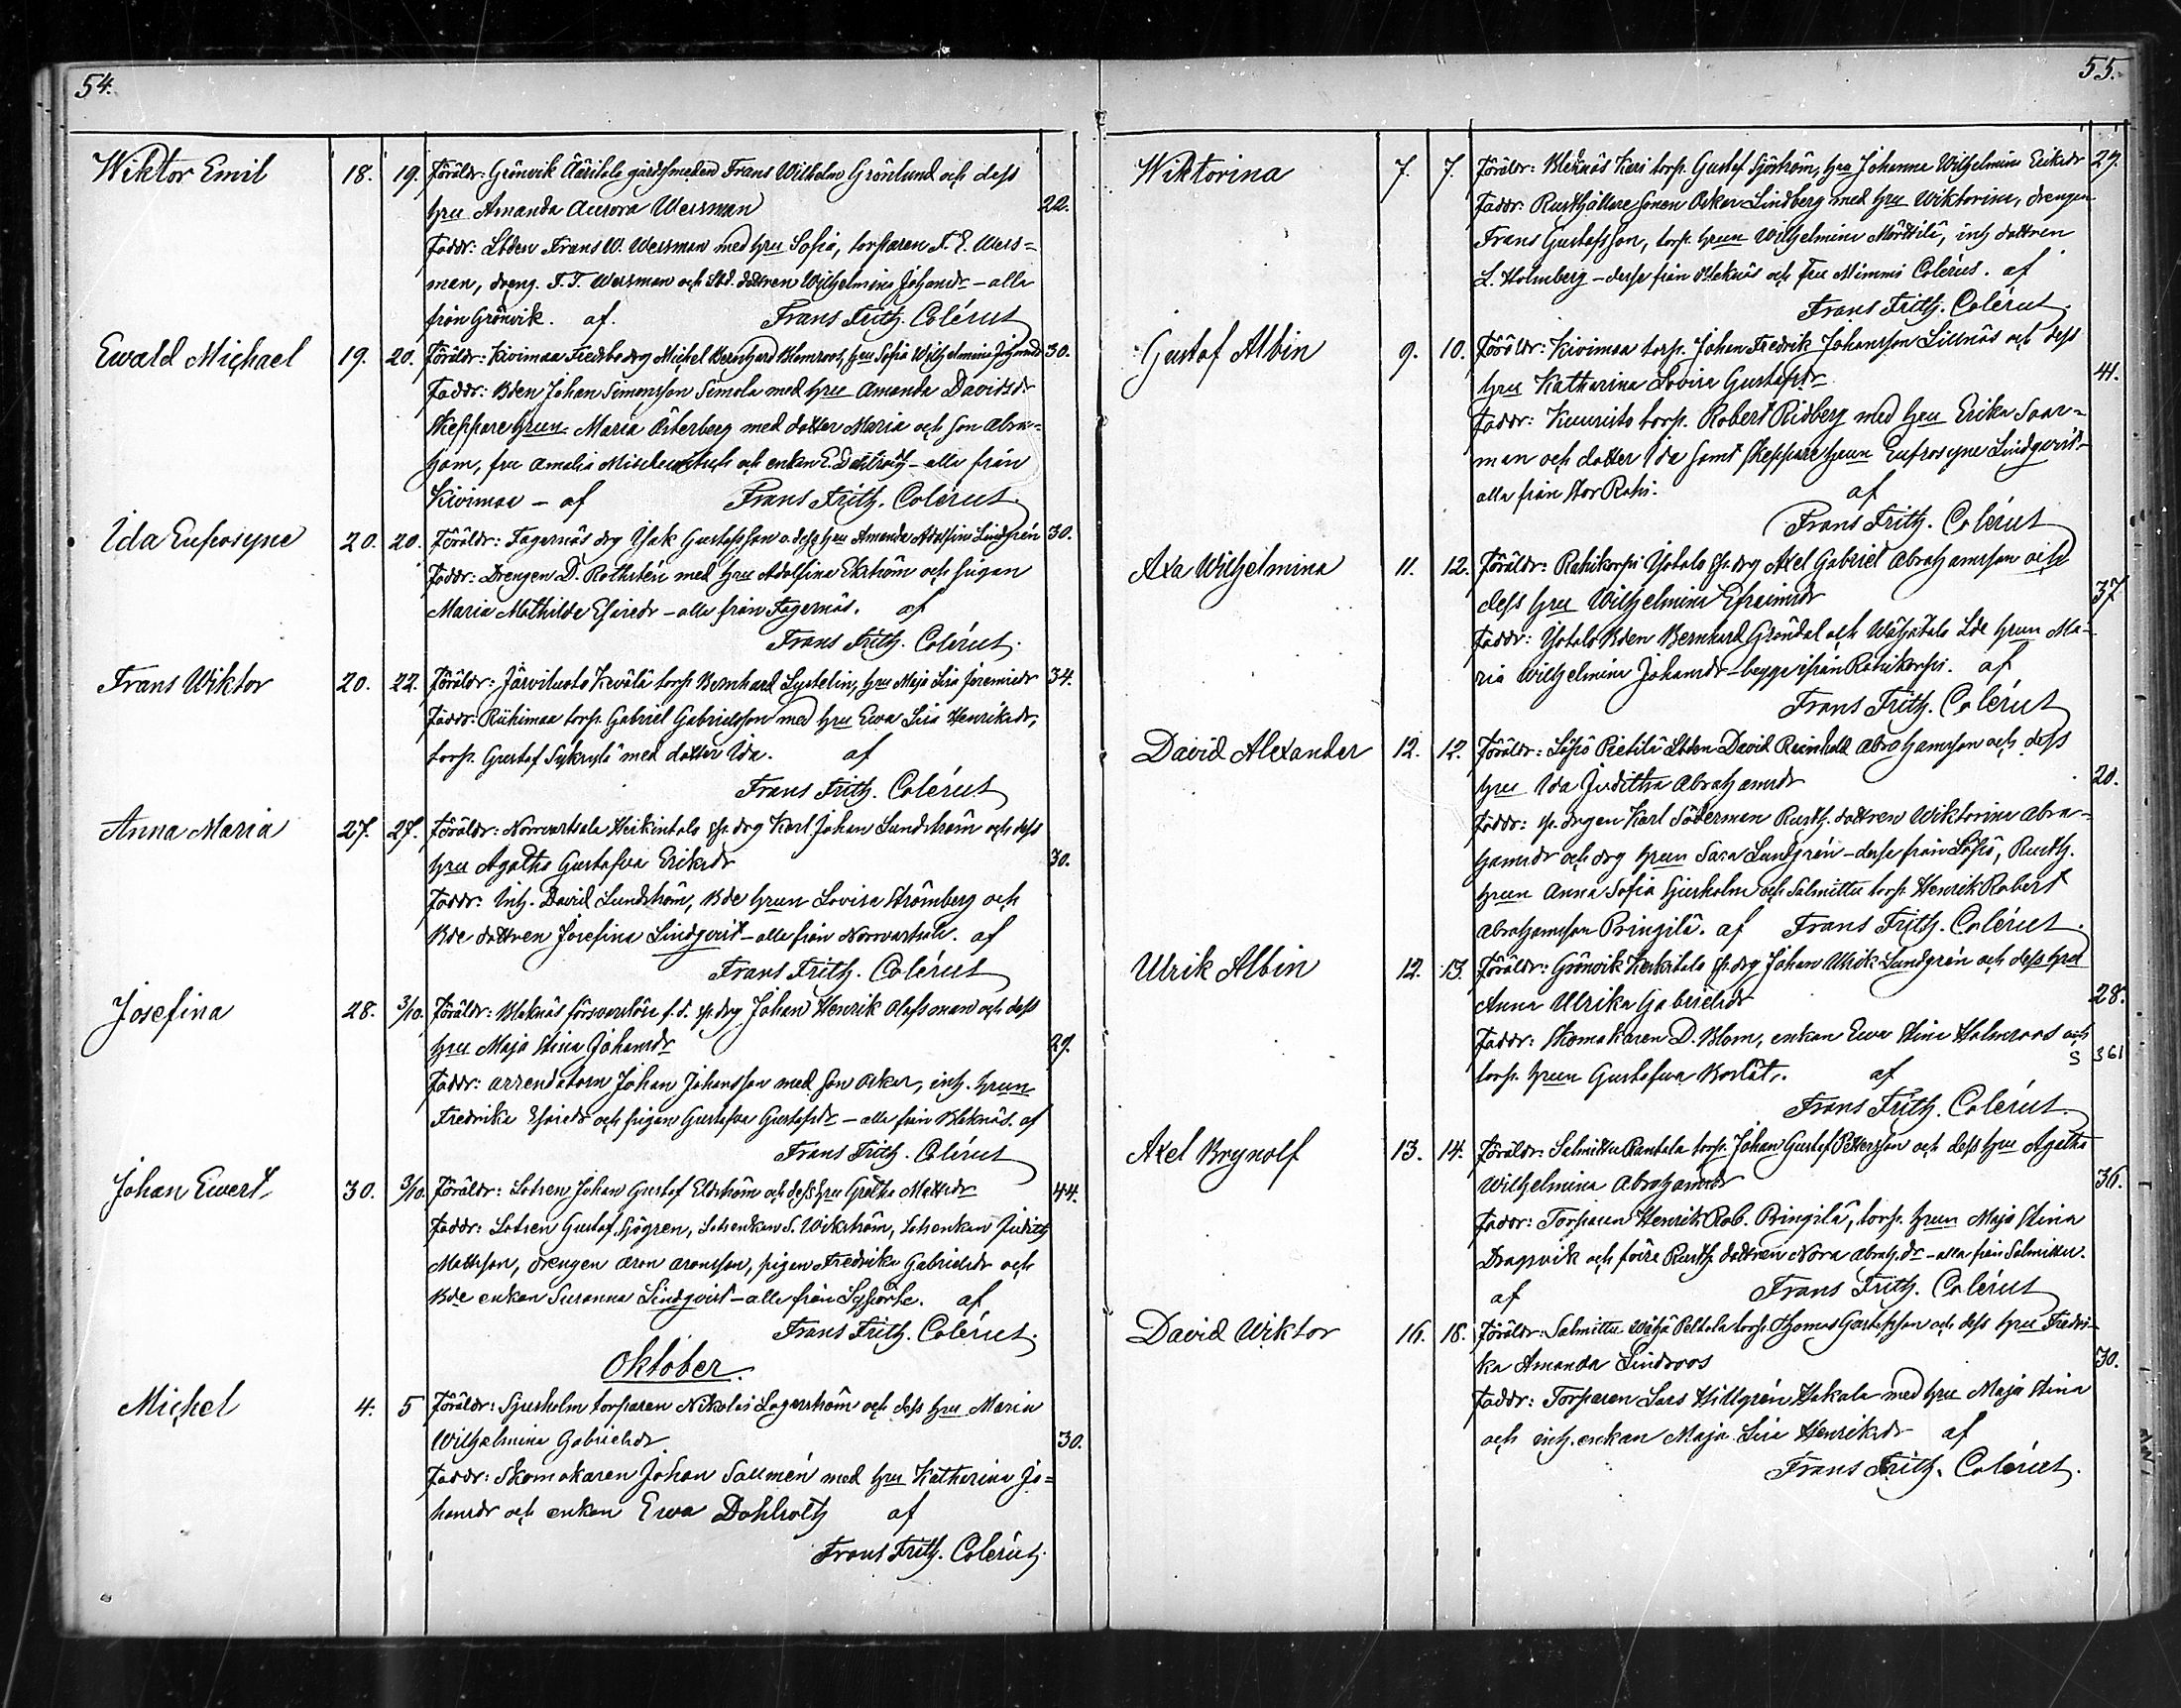 54.
Wiktor Emil 18. 19. Föräldr: Grönvik Ääritalo gårdssmeden Frans Wilhelm Grönlund och dess
hru Amanda Aurora Wessman 22.
Faddr: Lbden Frans W. Wessman med hru Sofia, torparen F. E. Wess=
man, dreng. F. F. Wessman och Lbd. dottren Wilhelmina Johansdr - alla
från Grönvik. af. Frans Frith. Colérus
Ewald Michael 19. 20. Föräldr: Kivimaa Fredbo drg Michel Bernhard Blomroos, hru Sofia Wilhelmina Johansdr 30.
Faddr: Bden Johan Simonsson Simola med hru Amanda Davidsdr
Skeppare hrun Maria Österberg med dotter Maria och son Abra=
ham, fru Amalia och enkan E. Dahlroth - alla från
Kivimaa - af Frans Frith. Colérus
Ida Eufrosyne 20. 20. Föräldr: Fagernäs drg Isak Gustafsson o. dess hru Amanda Adolfina Lindgrén 30.
Faddr: Drengen D. Rothstén med hru Adolfina Ekström och pigan
Maria Mathilda Esaiedr - alla från Fagernäs. af
Frans Frith. Colérus.
Frans Wiktor 20. 22. Föräldr: Järviluoto Kevälä torp. Bernhard Lystelin, hru Maja Lisa Jeremiedr 34.
Faddr: Riihimaa torp. Gabriel Gabrielsson med hru Ewa Lisa Henriksdr,
torp. Gustaf med dotter Ida. af
Frans Frith. Colérus
Anna Maria 27. 27. Föräldr: Norrvartsala Heikintalo sp. drg Karl Johan Lundström och dess
hru Agatha Gustafva Eriksdr 30.
Faddr: Inh. David Lundström, Bde hrun Lovisa Strömberg och
Bde dottren Josefina Lindqvist - alla från Norrvartsala. af
Frans Frith. Colérus
Josefina 28. 3/10. Föräldr: Bleknäs försvarslöse f.d. sp. drg Johan Henrik Olofsman och dess
hru Maja Stina Johansdr 29.
Faddr: arrendatorn Johan Johansson med son Oskar, inh. hrun
Fredrika Esaiedr och pigan Gustafva Gustafsdr - alla från Bleknäs. af
Frans Frith. Colérus
Johan Ewert 30. 3/10. Föräldr: Lotsen Johan Gustaf Eldström och dess hru Gretha Mattsdr 44.
Faddr: Lotsen Gustaf Sjögren, Lotsenkan S. Wikström, Lotsenkan Judith
Mattsson, drengen Aron Aronsson, pigan Fredrika Gabrielsdr och
Bde enkan Susanna Lindqvist - alla från Lypörte. af
Frans Frith. Colérus.
Oktober.
Michel 4. 5 Föräldr: Sjusholm torparen Nikolai Lagerström och dess hru Maria
Wilhelmina Gabrielsdr 30.
Faddr: Skomakaren Johan Sallmén med hru Katharina Jo=
hansdr och enkan Ewa Dahlroth af
Frans Frith. Colérus.
55.
Wiktorina 7. 7. Föräldr: Bleknäs Kari torp. Gustaf Sjöström, hru Johanna Wilhelmina Eriksdr 29.
Faddr: Rusthållare sonen Oskar Lindberg med hru Wiktorina, drengen
Frans Gustafsson, torp. hrun Wilhelmina Mörttilä, inh dottren
L. Holmberg - desse från Bleknäs och Fru Mimmi Colérus. af
Frans Frith. Colérus.
Gustaf Albin 9. 10. Föräldr: Kivimaa torp. Johan Fredrik Johansson Lillnäs och dess
hru Katharina Lovisa Gustafsdr 41.
Faddr: Kuuristo torp. Robert Ridberg med hru Erika Saar=
man och dotter Ida samt Skeppare hrun Eufrosyne Lindqvist -
alla från Stor Rahi. af
Frans Frith. Colérus
Axa Wilhelmina 11. 12. Föräldr: Rahikorpi Yotalo sp. drg Axel Gabriel Abrahamsson och
dess hru Wilhelmina Efraimsdr 37
Faddr: Yotalo Bden Bernhard Gröndal och Wähätalo Lde hrun Ma-
ria Wilhelmina Johansdr - begge ifrån Rahikorpi. af
Frans Frith. Colérus
David Alexander 12. 12. Föräldr: Löpö Pietilä Lbden David Reinhold Abrahamsson och dess
hru Ida Juditha Abrahamsdr 20.
Faddr: sp. drgen Karl Söderman Rusth. dottren Wiktorina Abra=
hamsdr och drg hrun Sara Lundgrén - desse från Löpö, Rusth.
hrun Anna Sofia Sjusholm och Salmittu torp. Henrik Robert
Abrahamsson Pringilä. af Frans Frith. Colérus.
Ulrik Albin 12. 13. Föräldr: Grönvik Keskitalo sp. drg Johan Ulrik Lundgrén och dess hru
Anna Ulrika Gabrielsdr 28.
Faddr: Skomakaren D. Blom, enkan Ewa Stina Holmroos och
S 361
torp. hrun Gustafva af
Frans Frith. Colérus.
Axel Brynolf 13. 14. Föräldr: Salmittu Rantala torp. Johan Gustaf Pettersson och dess hru Agatha
Wilhelmina Abrahamsdr 36.
Faddr: Torparen Henrik Rob. Pringilä, torp. hrun Maja Stina
Dragsvik och förre Rusth. dottren Nora Abrah.dr - alla från Salmittu.
af Frans Frith. Colérus
David Wiktor 16. 18. Föräldr: Salmittu Wähä Peltola torp. Thomas Gustafsson och dess hru Fredri-
ka Amanda Lindroos 30.
Faddr: Torparen Lars Hillgrén Hakala med hru Maja Stina
och inh. enkan Maja Lisa Henriksdr af
Frans Frith. Colérus.